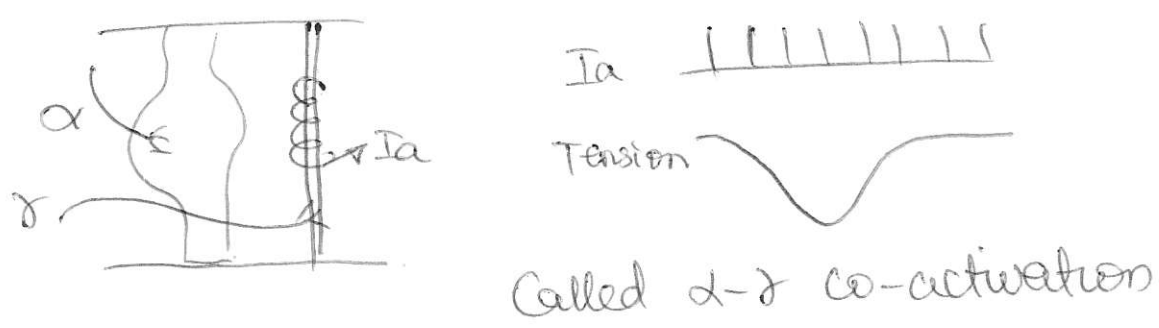 α
γ
Ia
Ia
Tension
Called α-γ co-activation